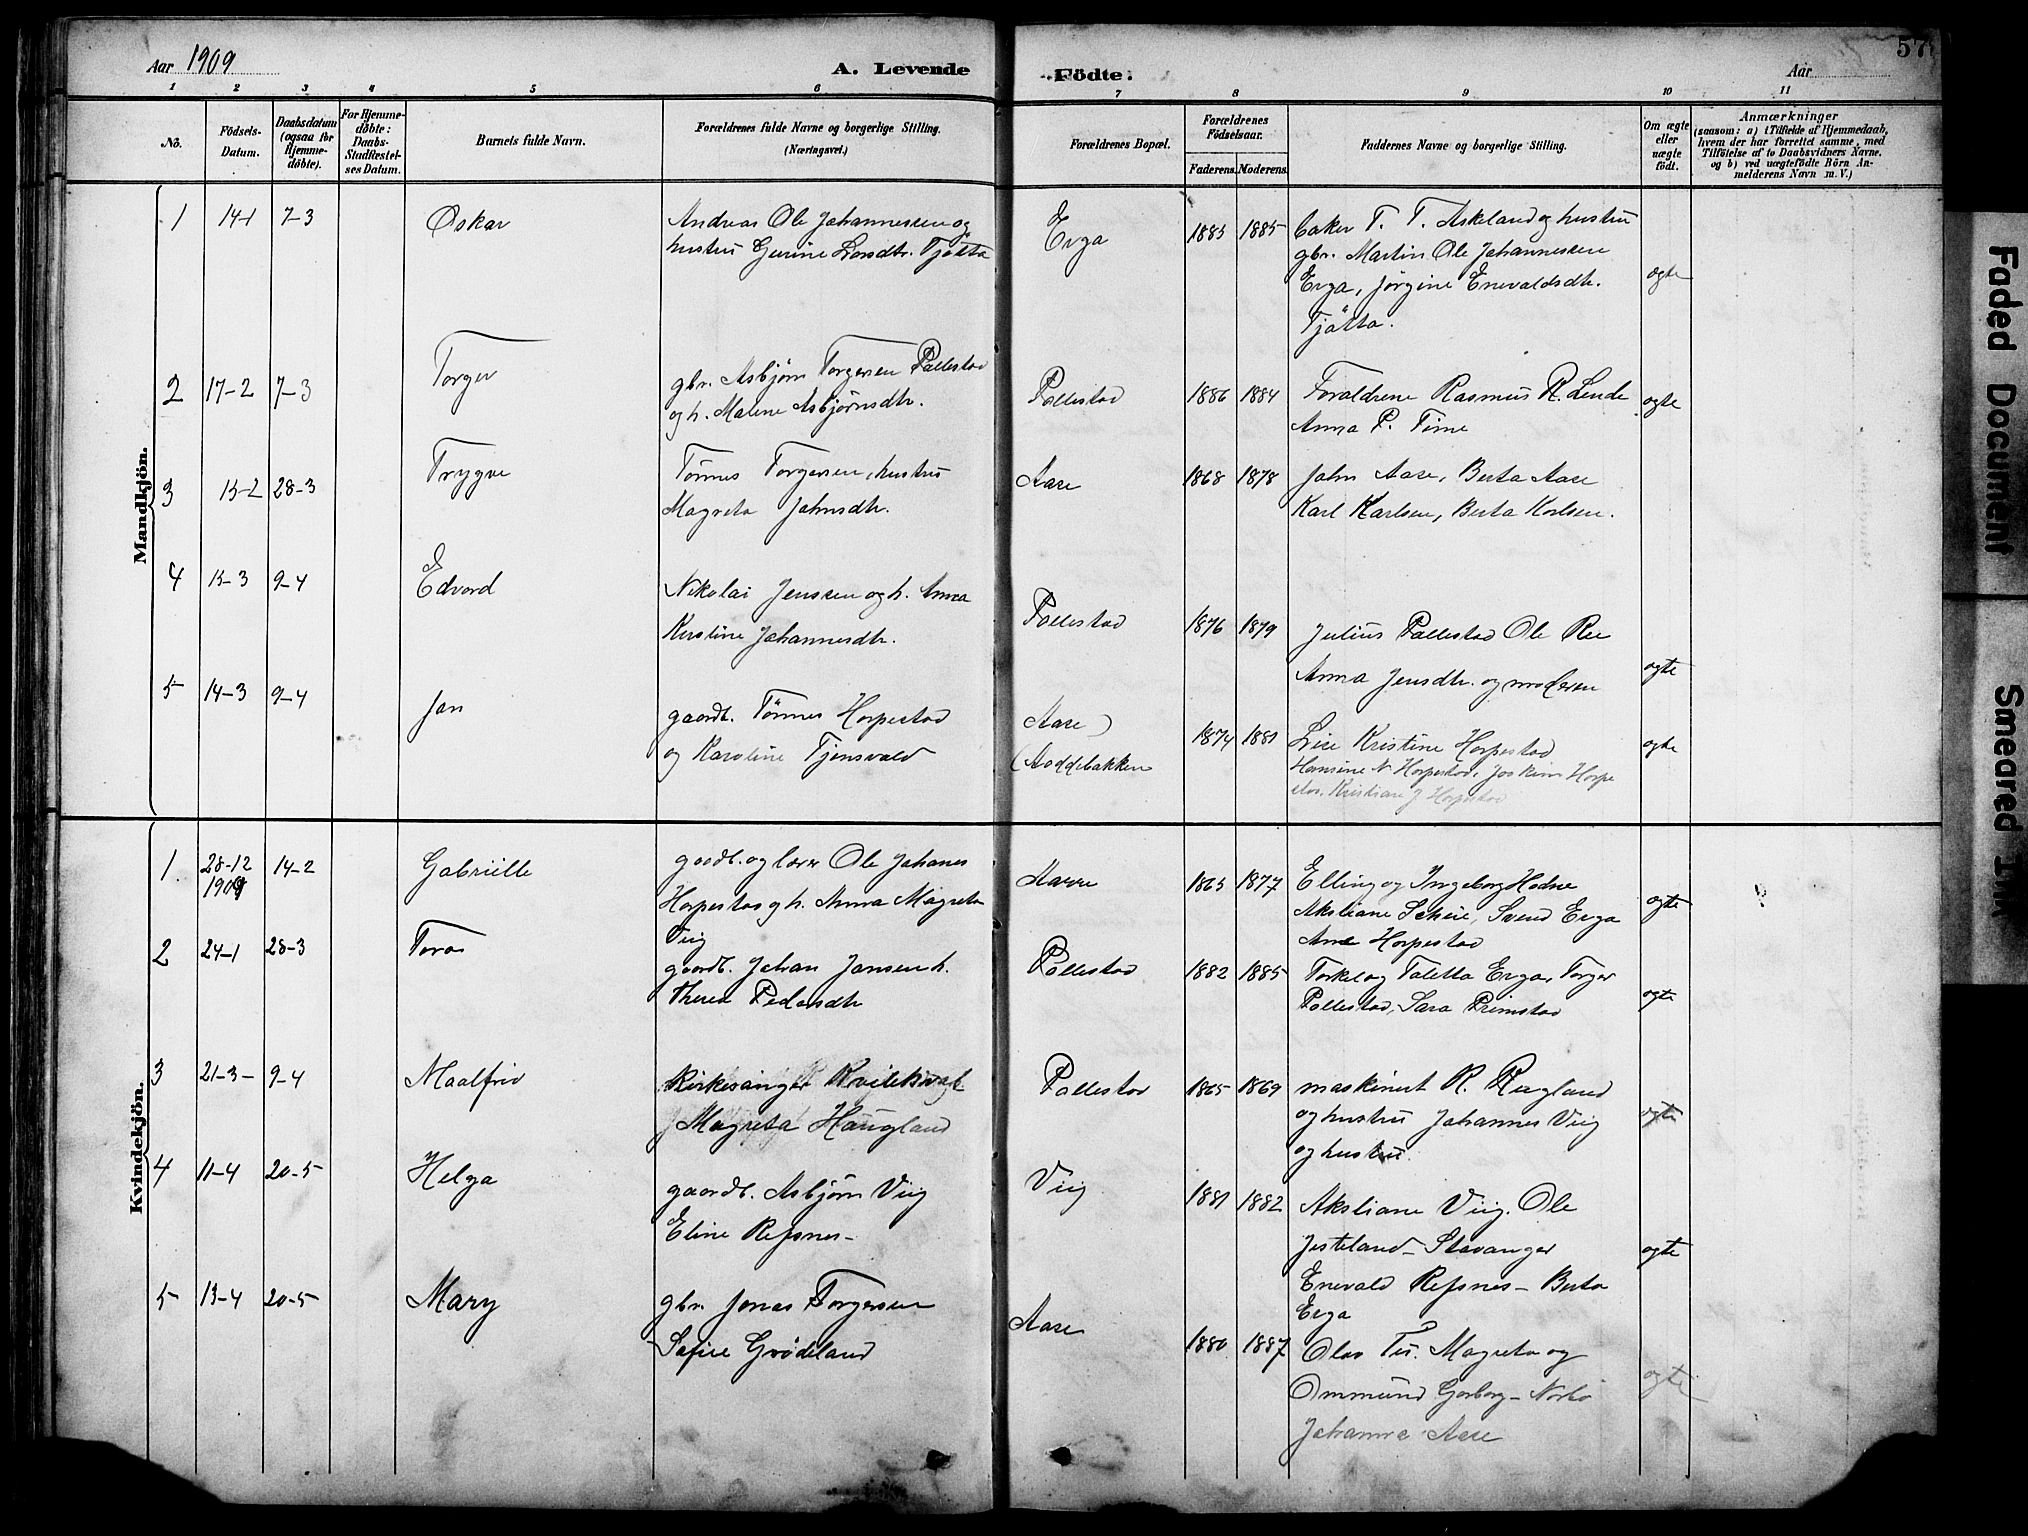 Aar 1909
A. Levende
Födte.
Aar
57
1 2 3 4 5 6 7 8 9 10 11
No.
Födsels-
Datum.
Daabsdatum
(ogsaa for
Hjemme-
døbte).
For Hjemme-
døbte:
Daabs-
Stadfæstel-
ses Datum.
Barnets fulde Navn.
Forældrenes fulde Navne og borgerlige Stilling.
(Næringsvei.)
Forældrenes Bopæl.
Forældrenes
Födselsaar.
Faderens. Moderens.
Faddernes Navne og borgerlige Stilling.
Om ægte
eller
uægte
født.
Anmærkninger
(saasom: a) i Tilfælde af Hjemmedaab,
hvem der har forrettet samme, med
Tilföielse af to Daabsvidners Navne,
og b) ved uægtefödte Börn An-
melderens Navn m. V.)
Mandkjön.
1 14-1 7-3 Oskar
Andreas Ole Johannessen og
hustru Gurine Larsdtr. Tjøtta
Erga 1883 1885
baker T. T. Askeland og hustru
gbr. Martin Ole Johannessen
Erga, Jørgine Enevaldsdtr.
Tjåtta.
ægte
2 17-2 7-3 Torger
gbr. Asbjørn Torgersen Pollestad
og h. Malene Asbjørnsdtr.
Pollestad 1886 1884
Forældrene Rasmus R. Lende
Anna P. Time
ægte
3 15-2 28-3 Trygve
Tönnes Torgersen, hustru
Magreta Johnsdtr.
Aase 1868 1878
John Aase, Berta Aase
Karl Karlsen, Berta Karlsen.
4 15-3 9-4 Edvard
Nikolai Jenssen og h. Anna
Kirstine Johannesdtr.
Pollestad 1876 1879
Julius Pollestad Ole Ree
Anna Jensdtr. og moderen
ægte
5 14-3 9-4 Jan
gaardb. Tönnes Horpestad
og Karoline Tjensvold
Aase)
(Aaddebakken
1874 1881
Lise Kristine Horpestad
Hansine N Horpestad, Joakim Horpe
stad. Kristiane J Horpestad
ægte
Kvindekjön.
1. 28-12
1909
14-2 Gabriille
gaardb. og lærer Ole Johanes
Horpestad og h. Anna Magreta
Viig
1863 1877
Elling og Ingeborg Hodne
Aksliane Scheie, Svend Erga
Ane Horpestad
ægte
2 24-1 28-3 Tora
gaardb. Johan Jansen h.
Theresa Pedersdtr
Pollestad 1882 1885
Torkel og Taletta Erga, Torger
Pollestad, Sara Primstad
ægte
3 21-3- 9-4 Maalfrid
Kirkesanger
Magreta Haugland
Pollestad 1865 1869
maskinist R. Rugland
og hustru Johannes Viig
og hustru
ægte
4 11-4 20-5 Helga
gaardb. Asbjörn Viig
Eline Refsnes-
Viig 1881 1882
Aksliane Viig. Ole
Jesteland- Stavanger
Enevald Refsnes- Berta
Erga
ægte
5 13-4 20-5 Mary
gbr. Jonas Torgersen
Sofie Grödeland
Aase 1880 1887
Olav Magreta og
Ommund Garborg- Norbø
Johanna Aase
ægte
Faded Document
Smeared Ink